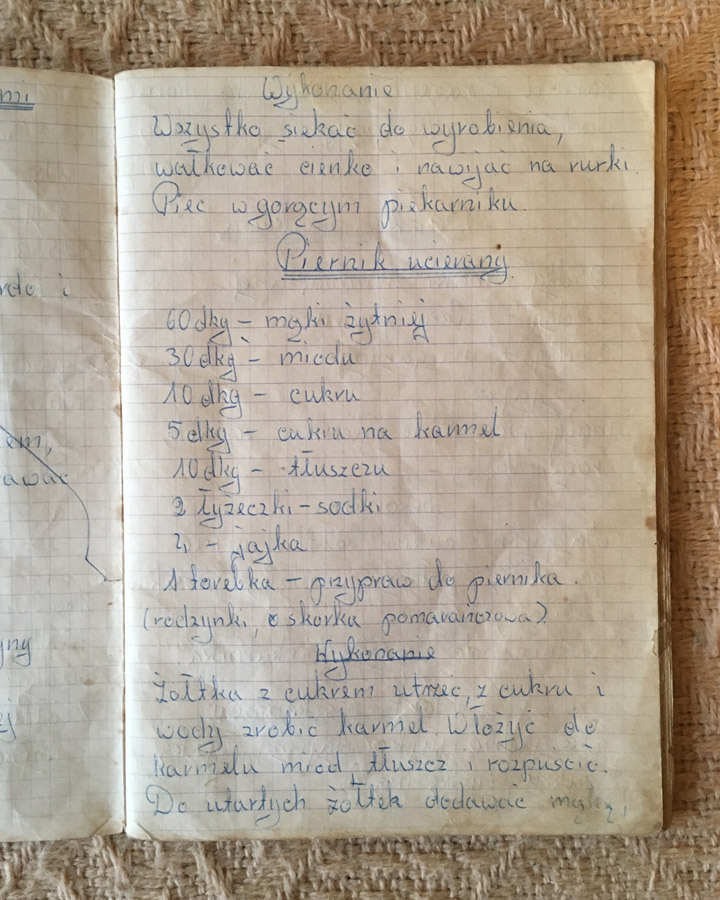 Wykonanie
Wszystko siekać do wyrobienia,
wałkować cienko i nawijać na rurki.
Piec w gorącym piekarniku.
Piernik ucierany
60 dkg – mąki żytniej
30 dkg – miodu
10 dkg – cukru
5 dkg – cukru na karmel
10 dkg – tłuszczu
2 łyżeczki – sodki
2 – jajka
1 torebka – przypraw do piernika.
(rodzynki, skórka pomarańczowa)
Wykonanie
Żółtka z cukrem utrzeć, z cukru i
wody zrobić karmel. Włożyć do
karmelu miód, tłuszcz i rozpuścić.
Do utartych żółtek dodawać mąkę,